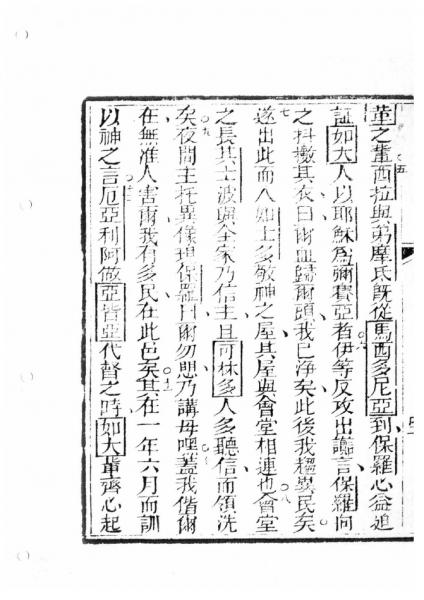 之輩西拉與弟摩氐既從馬西多尼亞到保羅心益追
証如大人以耶穌為彌賽亞者伊等反攻出讟言保羅向
之抖擻其衣曰爾血歸爾頭我已淨矣此後我趨異民矣
遂出此而入如土多敬神之屋其屋與會堂相連也會堂
之長其士波與全家乃信主且可林多人多聽信而領洗
矣夜間主托異像現保羅曰爾勿思乃講毋嘿蓋我偕爾
在無准人害爾我有多民在此邑矣其在一年六月而訓
以神之言厄亞利阿做亞皆亞代督之時如大輩齊心起